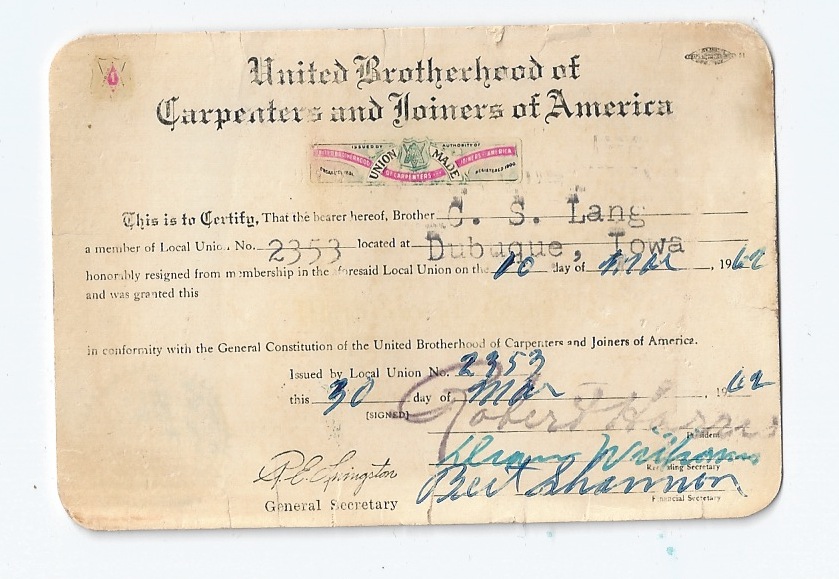 United Brotherhood of
Carpenters and Joiners of America
ISSUED BY AUTHORITY OF
UNITED BROTHERHOOD OF CARPENTERS AND JOINERS OF AMERICA
UNION MADE
REGISTERED 1900
This is to Certify, That the bearer hereof, Brother C. S. Lang
a member of Local Union No. 2353 located at Dubuque, Iowa
honorably resigned from membership in the aforesaid Local Union on the 10 day of Mar, 1962
and was granted this
in conformity with the General Constitution of the United Brotherhood of Carpenters and Joiners of America.
Issued by Local Union No. 2353
this 30 day of Mar, 1962
[SIGNED] Robert Harris
President
Williams
Recording Secretary
R. E. Livingston Bert Shannon
General Secretary Financial Secretary